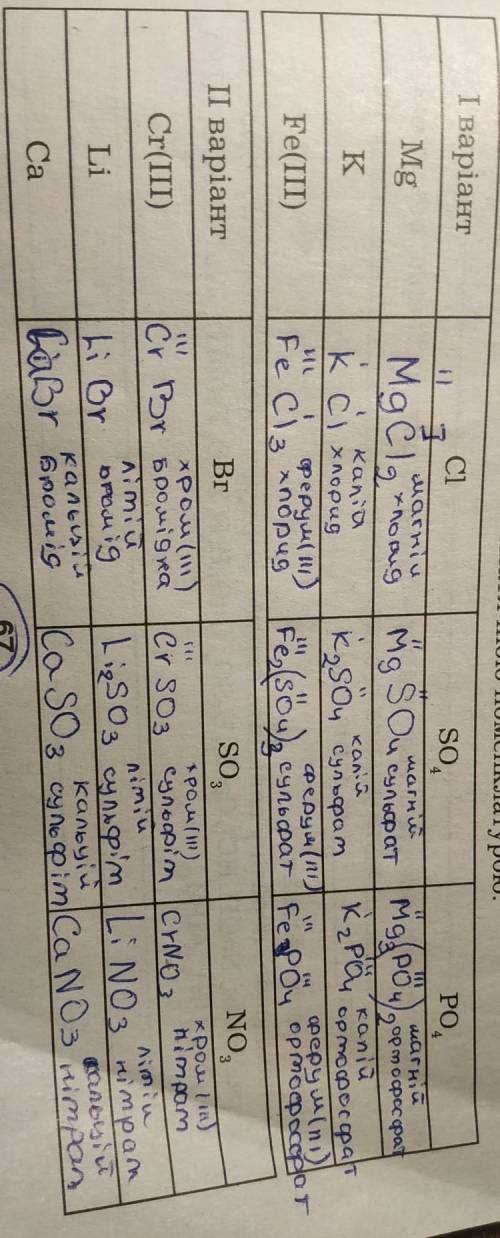 номенклатурою.
І варіант Cl SO₄ PO₄
Mg MgCl₂ магній хлорид MgSO₄ магній сульфат Mg₃(PO₄)₂ магній ортофосфат
K KCl калій хлорид K₂SO₄ калій сульфат K₂PO₄ калій ортофосфат
Fe(III) FeCl₃ ферум(III) хлорид Fe₂(SO₄)₃ ферум(III) сульфат FePO₄ ферум(III) ортофосфат
ІІ варіант Br SO₃ NO₃
Cr(III) CrBr хром(III) бромідка CrSO₃ хром(III) сульфіт CrNO₃ хром(III) нітрат
Li LiBr літій бромід Li₂SO₃ літій сульфіт LiNO₃ літій нітрат
Ca CaBr кальцій бромід CaSO₃ кальцій сульфіт CaNO₃ кальцій нітрат
67